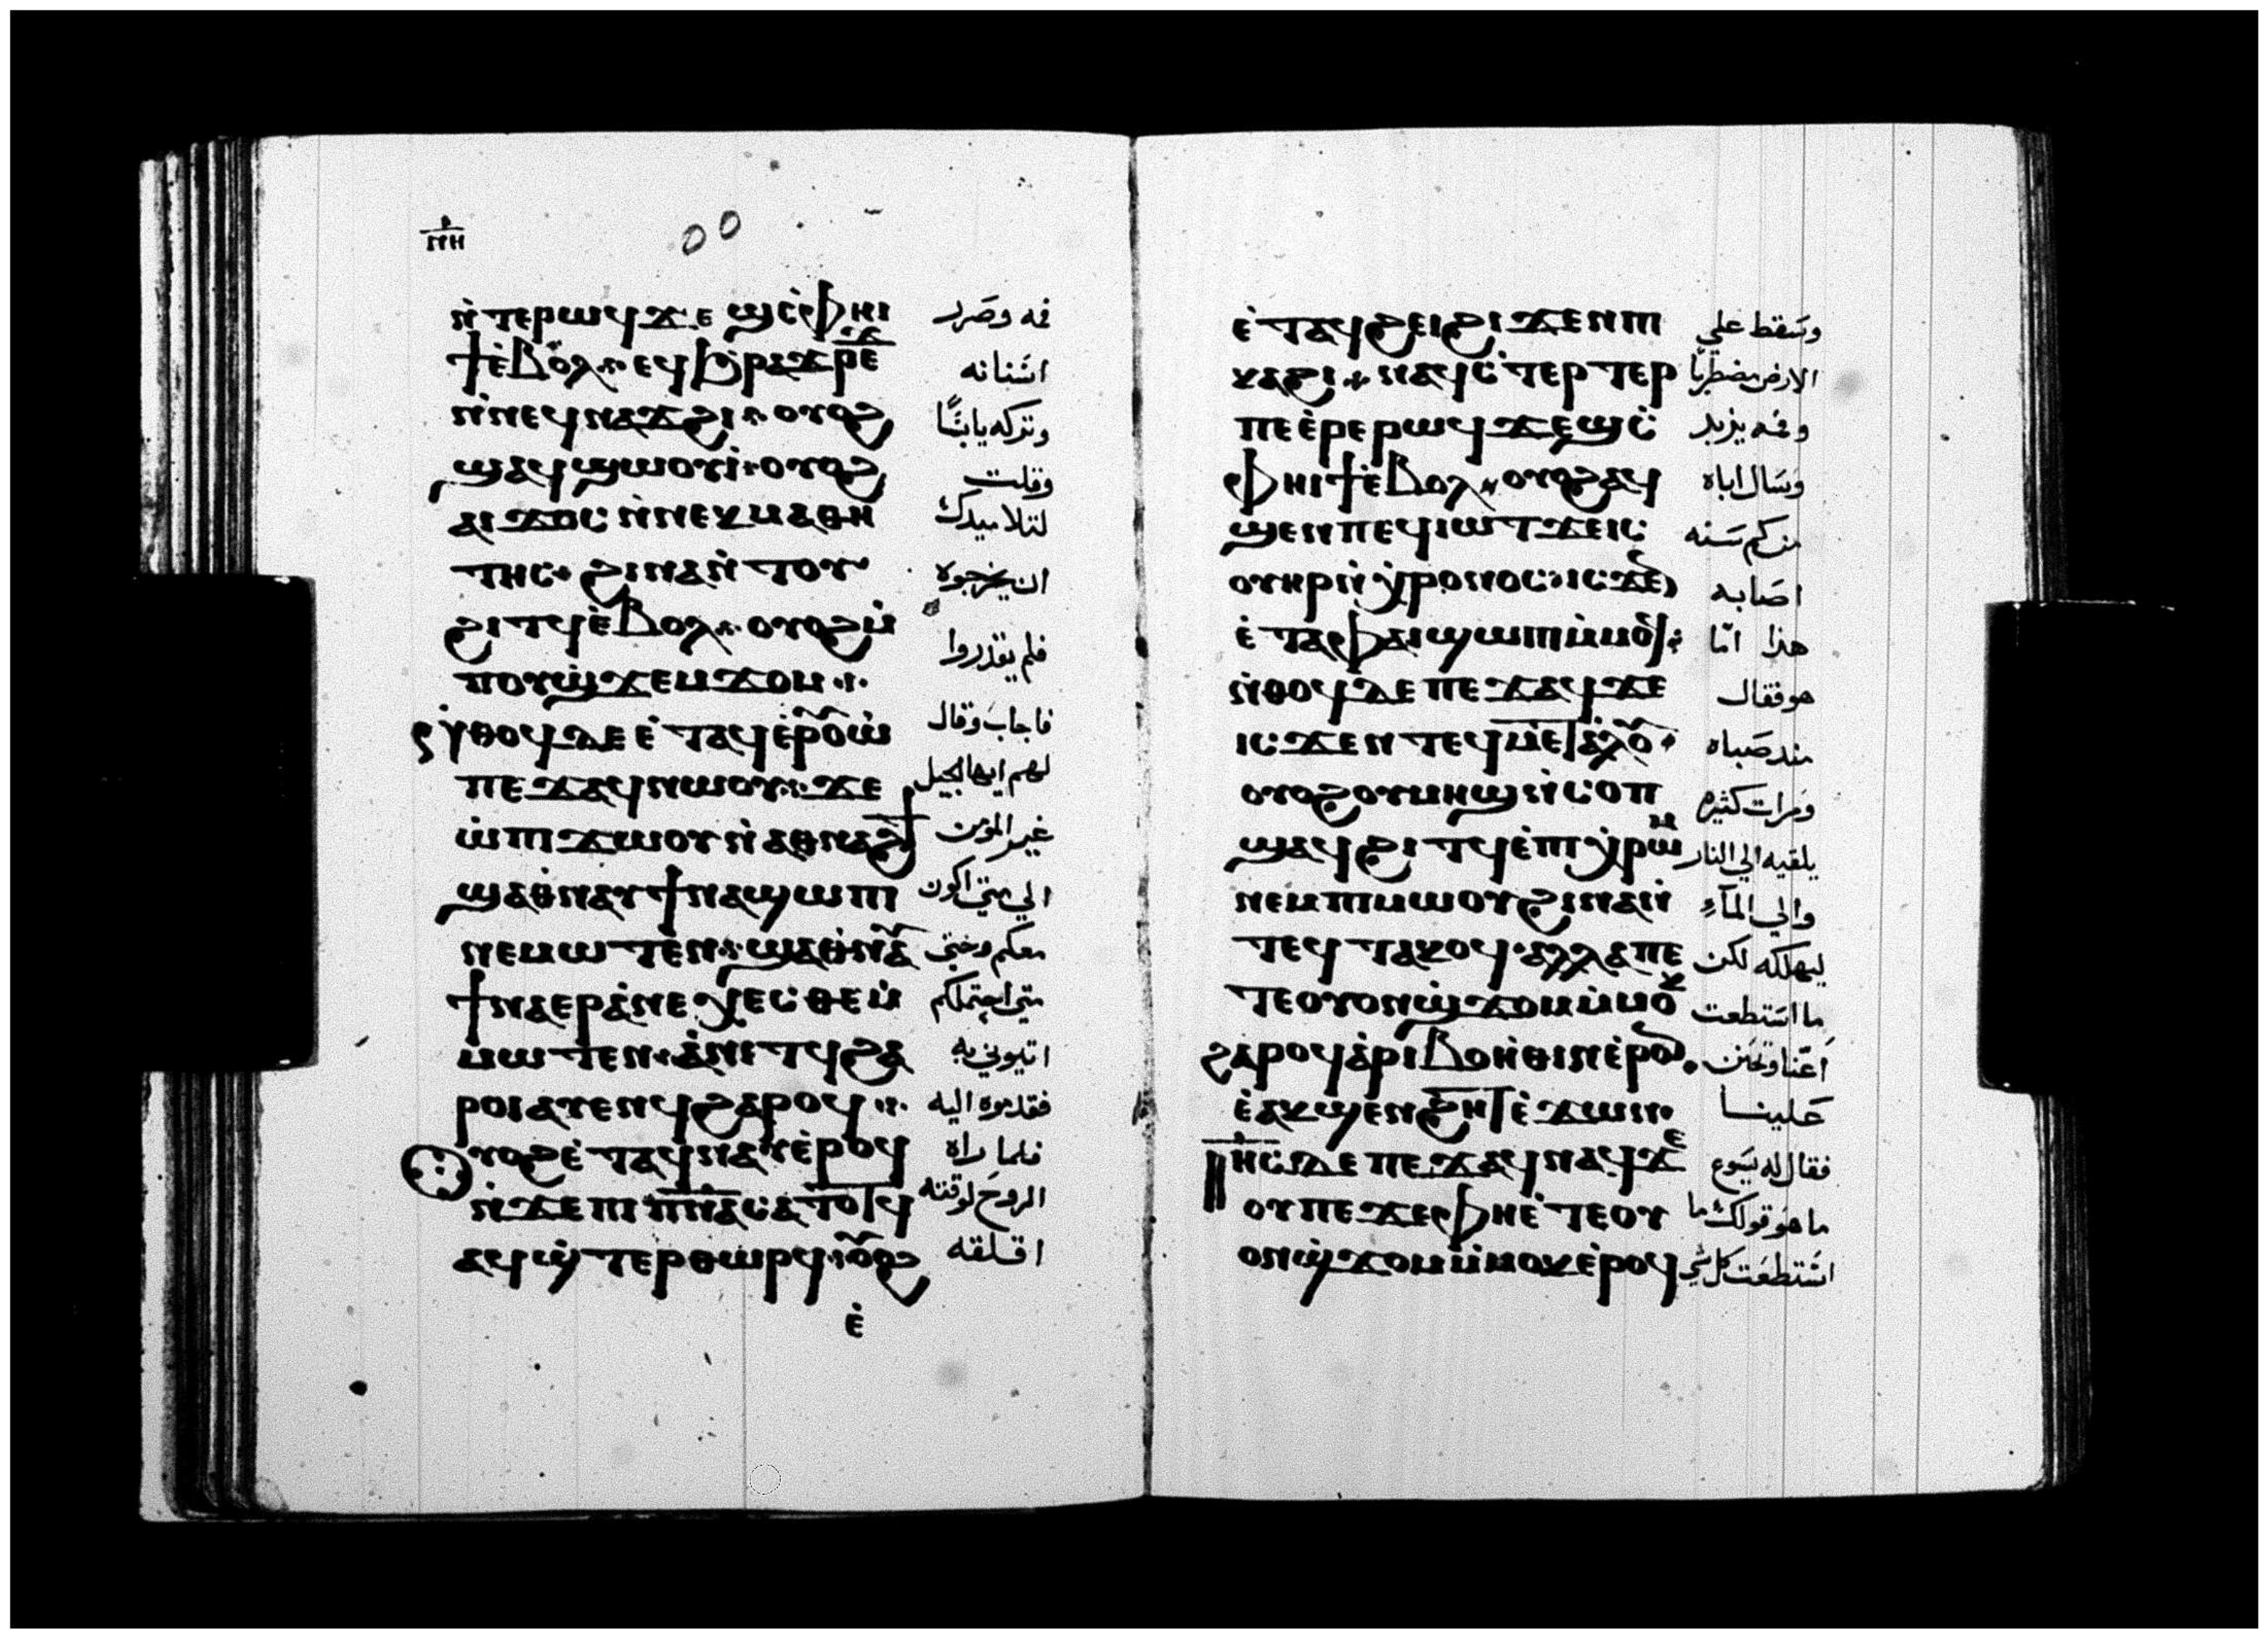 ⲛⲏ
00
ⲛ̀ⲧⲉⲣⲱϥϫⲉ ϣⲥ̀ⲉⲫⲏⲓ فمه وصرد
ϯⲉ̀ⲃⲟⲗ ⲉϥϧⲣⲁϫⲣⲉϫ اسنانه
ⲛ̀ⲛⲉϥⲛⲁϫϩⲓ ⲟⲩⲟϩ وتركه يابسًا
ϣⲁϥϣⲱⲟⲩⲓ̀ ⲟⲩⲟϩ وقلت
ⲁⲓϫⲟⲥ ⲛ̀ⲛⲉⲕⲙⲁⲑⲏ لتلاميدك
ⲧⲏⲥ ϩⲓⲛⲁⲛ̀ⲧⲟⲩ ان يخرجوه
ϩⲓⲧϥⲉ̀ⲃⲟⲗ ⲟⲩⲟϩⲙ̀
ⲡⲟⲩϣ̀ϫⲉⲙϫⲟⲙ فلم يقدروا
ⲛ̀ⲑⲟϥⲇⲉ ⲉ̀ⲧⲁϥⲉ̀ⲣⲟⲩⲱ̀ فاجاب وقال
ⲡⲉϫⲁϥⲛⲱⲟⲩ ϫⲉ لهم ايها الجيل
ⲱ̀ⲡⲓϫⲱⲟⲩⲛ̀ⲁⲑⲛⲁϩϯ غير المومن
ϣⲁⲑⲛⲁⲩϯⲛⲁϣⲱⲡⲓ الي متي اكون
ⲛⲉⲙⲱⲧⲉⲛ ϣⲁⲑⲛⲁⲩ معكم وحتي
ϯⲛⲁⲉⲣⲁ̀ⲛⲉⲭⲉⲥⲑⲉⲙ̀ متي احتملكم
ⲙⲱⲧⲉⲛ ⲁ̀ⲛⲓⲧϥϩⲁ اتيوني به
ⲣⲟⲓⲁⲩⲉⲛϥϩⲁⲣⲟϥ فقدموه اليه
ⲟⲩⲟϩⲉ̀ⲧⲁϥⲛⲁⲩⲉ̀ⲣⲟϥ فلما راه
ⲛ̀ϫⲉⲡⲓⲡⲛⲁ̅ⲥⲁⲧⲟⲧϥ الروح لوقته
ⲁϥϣ̀ⲧⲉⲣⲑⲱⲣϥ ⲟⲩⲟϩ اقلقه
ⲉ̀
ⲉ̀ⲧⲁϥϩⲉⲓϩⲓϫⲉⲛⲡⲓ وسقط علي
ⲕⲁϩⲓ ⲛⲁϥⲥ̀ⲧⲉⲣⲧⲉⲣ الارض مضطربًا
ⲡⲉⲉ̀ⲣⲉⲣⲱϥϫⲉϣⲥ̀ وفمه يزبد
ⲉⲫⲏⲓϯⲉ̀ⲃⲟⲗ ⲟⲩⲟϩⲁϥ وسال اباه
ϣⲉⲛⲡⲉϥⲓⲱⲧϫⲉⲓⲥ من كم سنه
ⲟⲩⲏⲣⲛ̀ⲭⲣⲟⲛⲟⲥⲓⲥϫⲉⲛ اصابه
ⲉ̀ⲧⲁⲫⲁⲓϣⲱⲡⲓⲙ̀ⲙⲟϥ هذا امّا
ⲛ̀ⲑⲟϥⲇⲉ ⲡⲉϫⲁϥϫⲉ هو فقال
ⲓⲥϫⲉⲛ ⲧⲉϥⲙⲉⲧⲁ̀ⲗⲟⲩ مند صباه
ⲟⲩⲟϩⲟⲩⲙⲏϣⲛ̀ⲥⲟⲡ ومرات كثيره
ϣⲁϥϩⲓⲧϥⲉ̀ⲡⲓⲭ̀ⲣⲱⲙ يلقيه الي النار
ⲛⲉⲙⲡⲓⲙⲱⲟⲩϩⲓⲛⲁⲛ̀ والي المآءِ
ⲧⲉϥⲧⲁⲕⲟϥ ⲁⲗⲗⲁⲡⲉ ليهلكه لكن
ⲧⲉⲟⲩⲟⲛϣ̀ϫⲟⲙⲙ̀ⲙⲟⲕ ما استطعت
ϩⲁⲣⲟϥⲁ̀ⲣⲓⲃⲟⲏ̀ⲑⲓⲛⲉ̀ⲣⲟⲛ اعنّا وتحنن
ⲉ̀ⲁⲕϣⲉⲛϩⲏⲧⲉ̀ϫⲱⲛ علينا
ⲓⲏⲥ ⲇⲉ ⲡⲉϫⲁϥⲛⲁϥϫⲉ فقال له يسوع
ⲟⲩⲡⲉϫⲉⲫⲏⲉ̀ⲧⲉⲟⲩ ما هو قولك ما
ⲟⲛϣ̀ϫⲟⲙⲙ̀ⲙⲟⲕⲉ̀ⲣⲟϥ استطعت كل شي